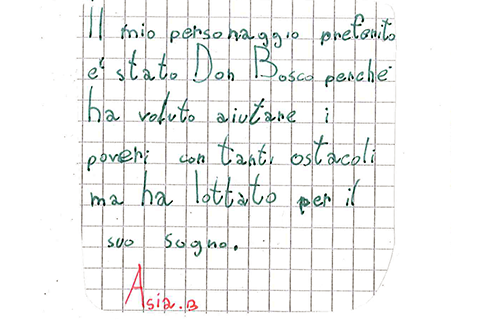 Il mio personaggio preferito
e' stato Don Bosco perché
ha voluto aiutare i
poveri con tanti ostacoli
ma ha lottato per il
suo sogno.
Asia.B